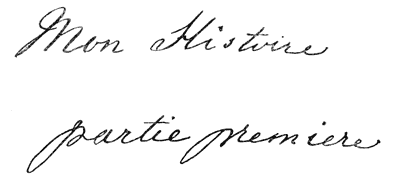 Mon Histoire
partie premiere